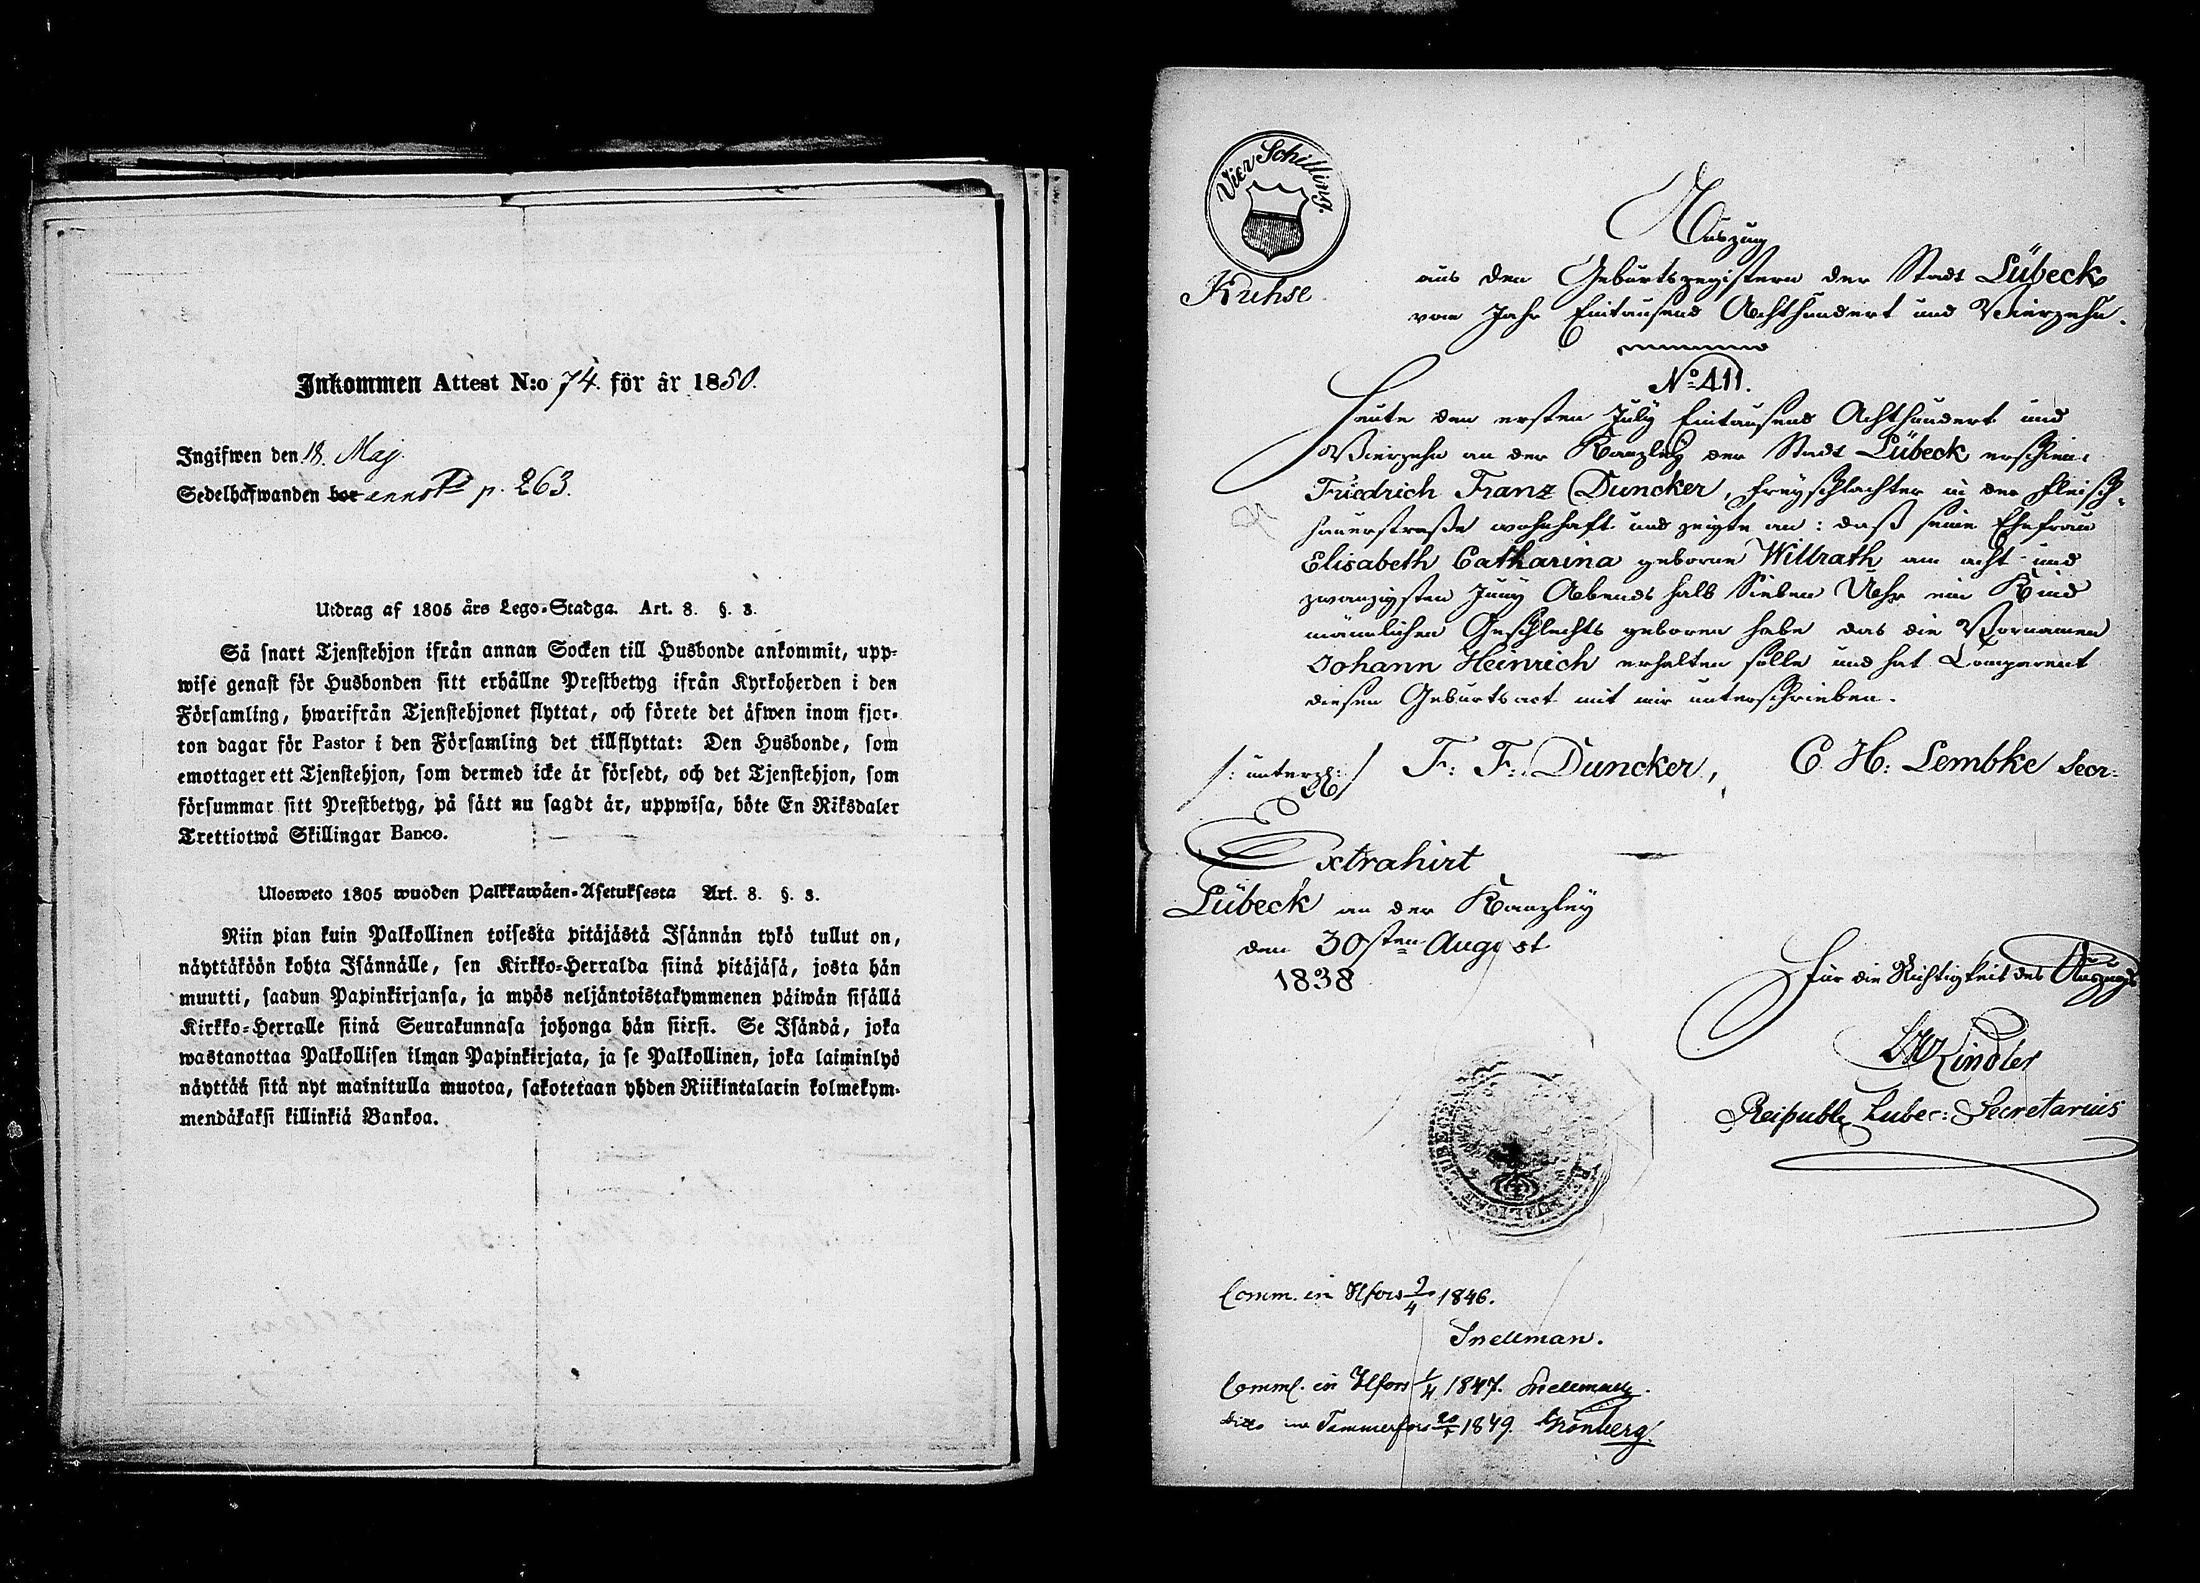 Inkommen Attest N:o 74. för år 1850.
Ingifwen den 18. Maj.
Sedelhafwanden bor p. 263.
Utdrag af 1805 års Lego-Stadga. Art. 8. §. 3.
Så snart Tjenstehjon ifrån annan Socken till Husbonde ankommit, upp-
wise genast för Husbonden sitt erhållne Prestbetyg ifrån Kyrkoherden i den
Församling, hwarifrån Tjenstehjonet flyttat, och förete det äfwen inom fjor-
ton dagar för Pastor i den Församling det tillflyttat: Den Husbonde, som
emottager ett Tjenstehjon, som dermed icke är försedt, och det Tjenstehjon, som
försummar sitt Prestbetyg, på sätt nu sagdt är, uppwisa, böte En Riksdaler
Trettiotwå Skillingar Banco.
Ulosweto 1805 wuoden Palkkawäen-Asetuksesta Art. 8. §. 3.
Niin pian kuin Palkollinen toisesta pitäjästä Isännän tykö tullut on,
näyttäköön kohta Isännälle, sen Kirkko-Herralda siinä pitäjäsä, josta hän
muutti, saadun Papinkirjansa, ja myös neljäntoistakymmenen päiwän sisällä
Kirkko-Herralle siinä Seurakunnasa johonga hän siirsi. Se Isändä, joka
wastanottaa Palkollisen ilman Papinkirjata, ja se Palkollinen, joka laiminlyö
näyttää sitä nyt mainitulla muotoa, sakotetaan yhden Riikintalarin kolmekym-
mendäkaksi killinkiä Bankoa.
Vier Schilling.
Kuhse
Auszug
aus den Geburtsregistern der Stadt Lübeck
vom Jahr Eintausend Achthundert und Vierzehn.
No. 411.
Heute den ersten July Eintausend Achthundert und
Vierzehn an der Kanzley der Stadt Lübeck erschien
Friedrich Franz Duncker, Freyschlachter in der Fleisch-
hauerstraße wohnhaft und zeigte an: daß seine Ehefrau
Elisabeth Catharina geborne Willrath am acht und
zwanzigsten Juny Abends halb Sieben Uhr ein Kind
männlichen Geschlechts geboren habe das die Vornamen
Johann Heinrich erhalten solle und hat Comparent
diesen Geburtsact mit mir unterschrieben.
/: unterz: / F: F: Duncker, C. H: Lembke Secr:
Extrahirt
Lübeck an der Kanzley
den 30sten August
1838
Für die Richtigkeit des Auszugs
Kindler
Reipubl Lubec: Secretarius
Comm. in Hfors 9/4 1846.
Snellman.
Comm. in Hfors 1/4 1847. Snellman.
ditto in Tammerfors 1849. Grönberg.